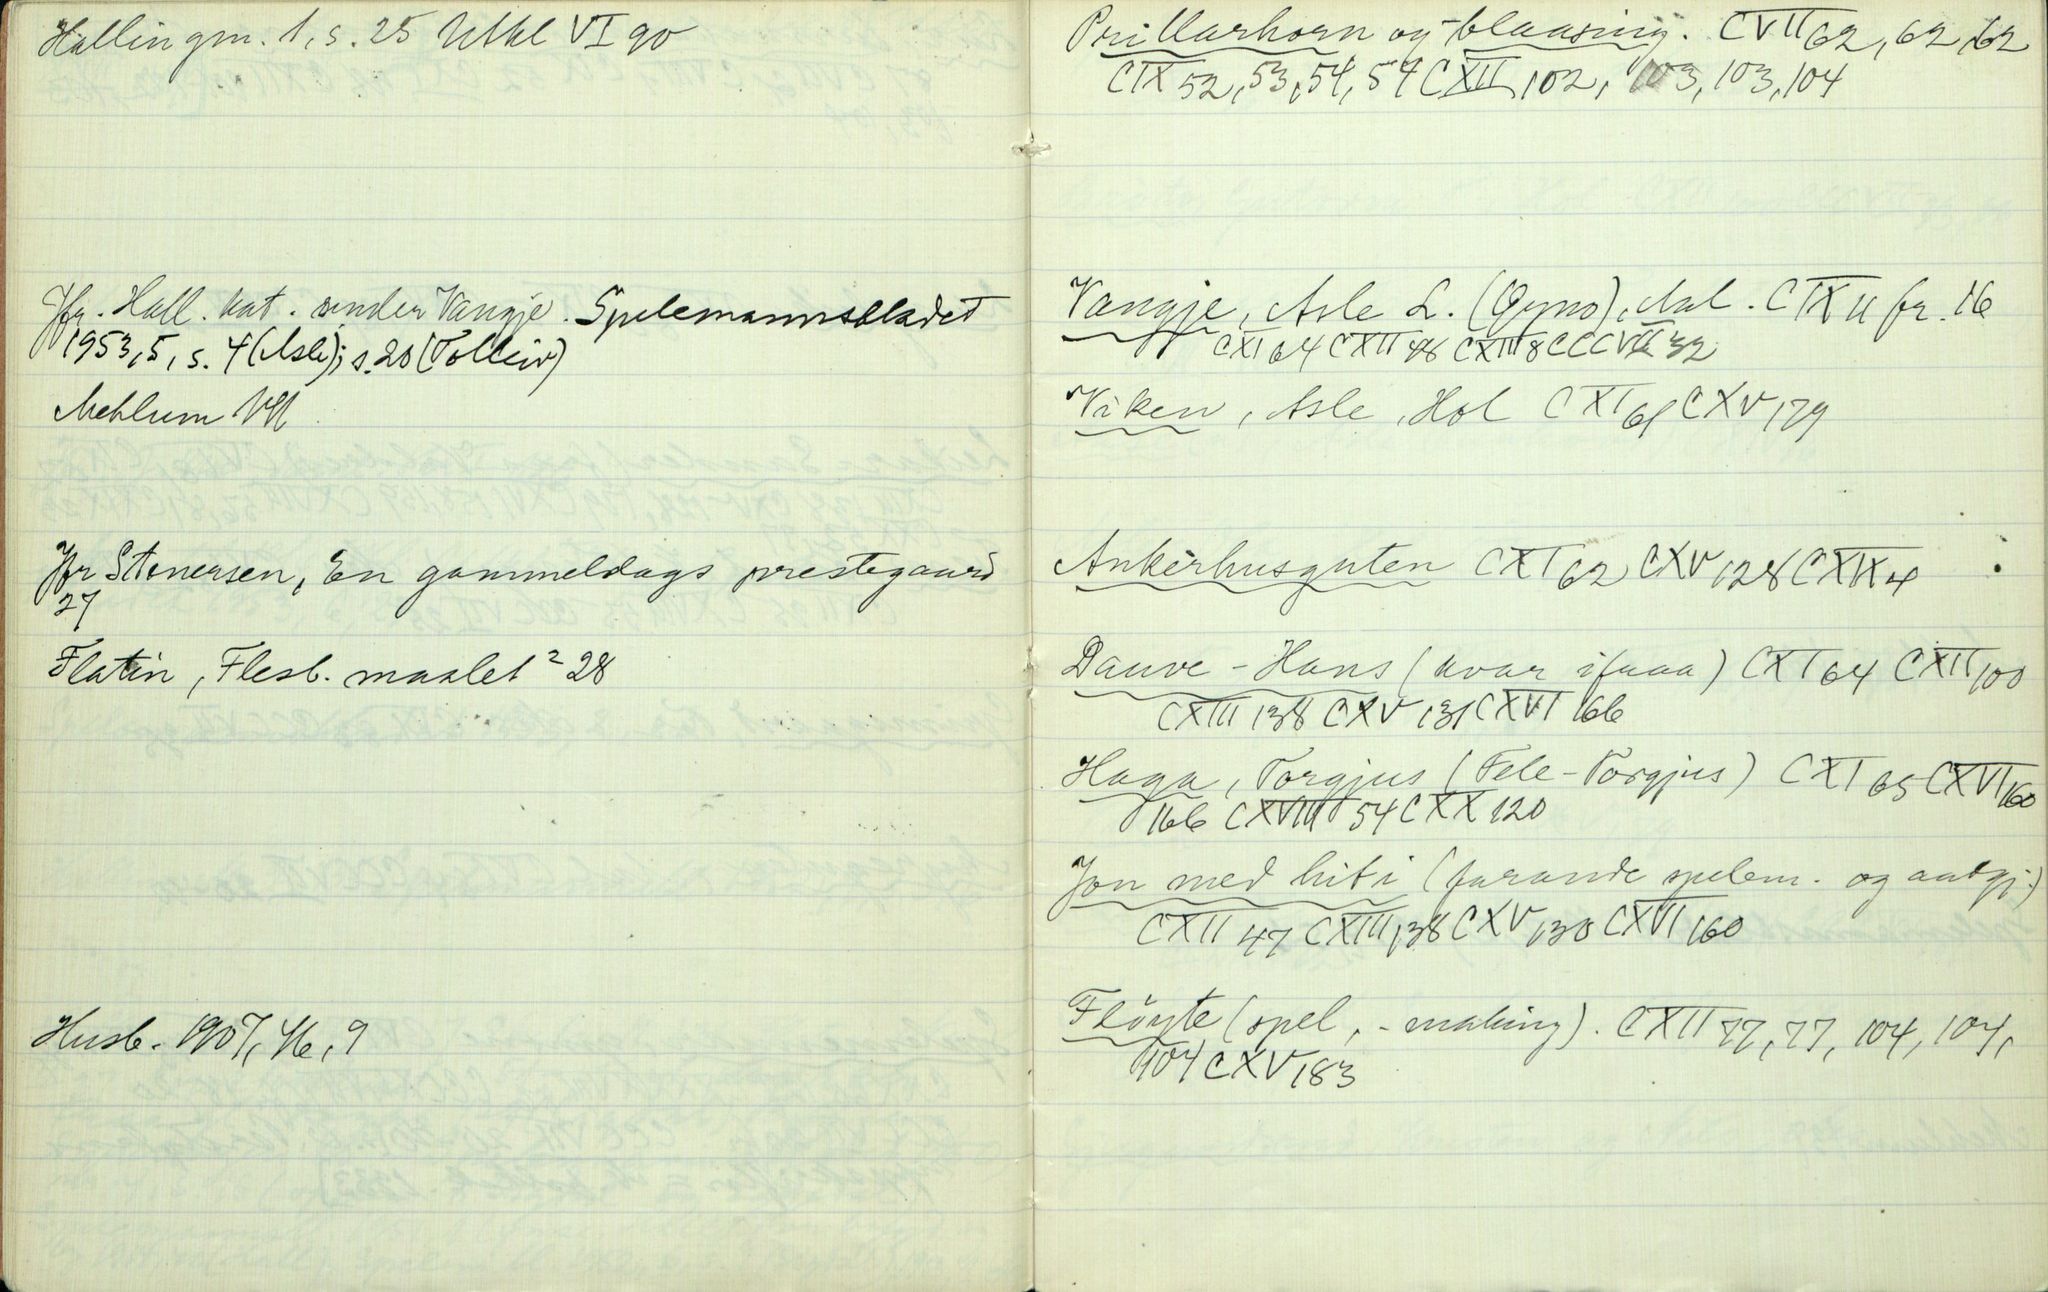 Hallingm. 1, s. 25 Utkl VI 90
Jfr. Hall. kat. under Vangje. Spelemannsbladet
1953, 5, s. 4 (Asle); s. 20 (Tolleiv)
Mehlum
Jfr Stenersen, En gammeldags prestegaard
27
Flatin, Flesb. maalet² 28
Husb. 1907, 46, 9
Prillarhorn og -blaasing. CVII 62, 62, 62
CIX 52, 53, 54, 54 CXII 102, 103, 103, 104
Vangje, Asle L. (Øyno), Aal. CIX 11 fr. 16
CXI 64 CXII 48 CXIII 8 CCCVII 32
Viken, Asle, Hol CXI 61 CXV 179
Ankerhusguten CXI 62 CXV 128 CXIX 4
Dauve-Hans (kvar ifraa) CXI 64 CXII 100
CXIII 138 CXV 131 CXVI 166
Haga, Torgjus (Fele-Torgjus) CXI 65 CXVI 160
166 CXVIII 54 CXX 120
Jon med hiti (farande spelem. og aatgj.)
CXII 47 CXIII 138 CXV 130 CXVI 160
Fløyte (spel, -making). CXII 77, 77, 104, 104,
104 CXV 183